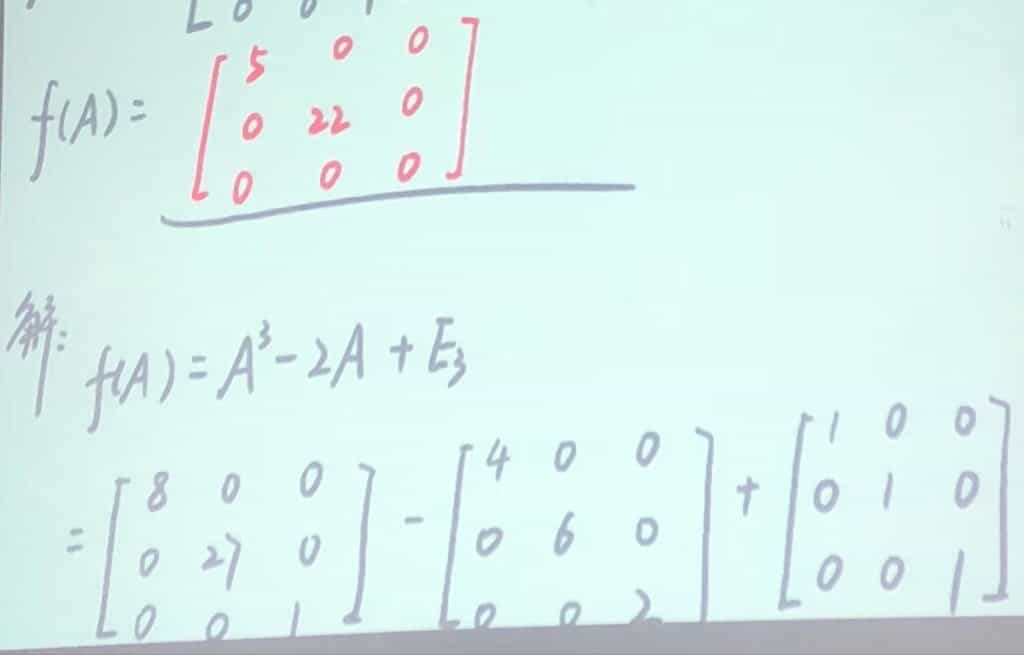 [ 0 0
f(A) = [ 5 0 0
0 22 0
0 0 0 ]
解: f(A) = A³ - 2A + E₃
= [ 8 0 0
0 27 0
0 0 1 ] - [ 4 0 0
0 6 0
0 0 2 ] + [ 1 0 0
0 1 0
0 0 1 ]